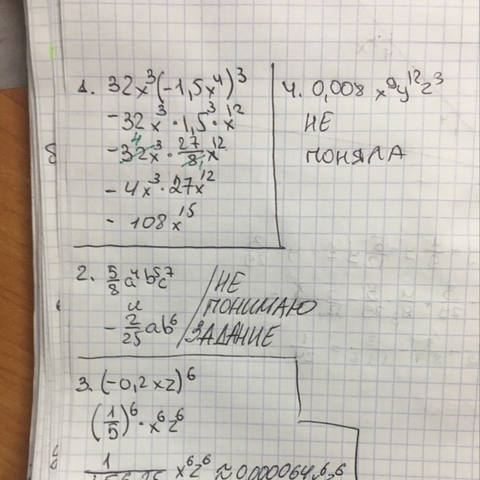 1. 32x³(-1,5x⁴)³
-32x³·1,5³·x¹²
-32x³·27/8x¹²
-4x³·27x¹²
- 108x¹⁵
4. 0,008 x⁹y¹²z³
НЕ
ПОНЯЛА
2. 5/8a⁴b⁵c⁷
и
- 2/25ab⁶
НЕ
ПОНИМАЮ
ЗАДАНИЕ
3. (-0,2xz)⁶
(1/5)⁶·x⁶z⁶
x⁶z⁶≈0,000064x⁶z⁶